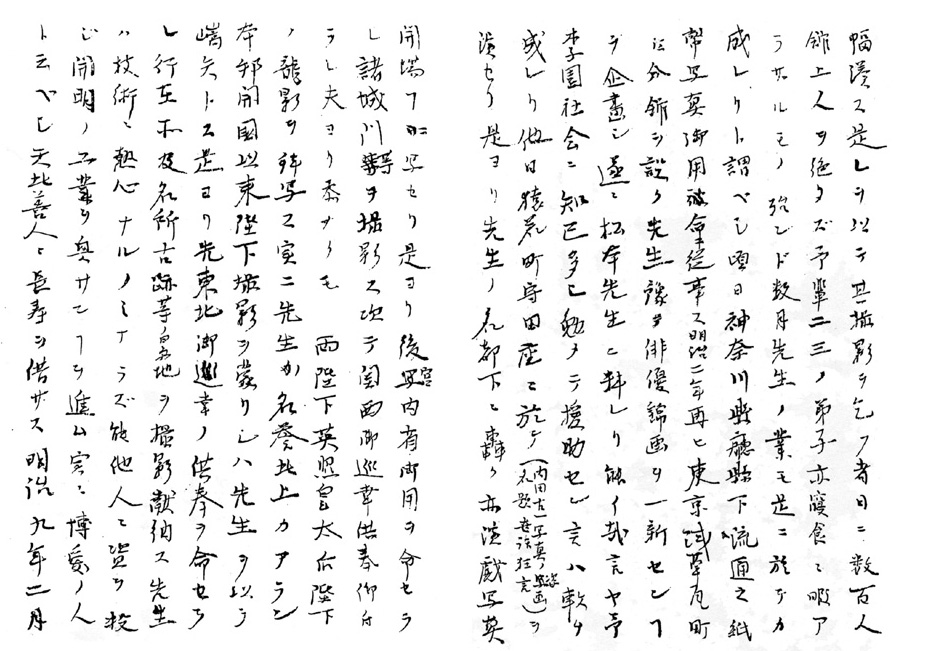 幅湊ス是レヲ以テ其撮影ヲ乞フ者日ニ数百人
餝上人ヲ絶タズ予輩二三ノ弟子亦寝食ニ暇ア
ラサルモノ殆ンド数月先生ノ業モ是ニ於テカ
成レリト謂ベシ頃日神奈川県廳縣下流通之紙
幣写真御用被命従事ス明治二年再ヒ東京浅草瓦町
ニ分餝ヲ設ク先生謙テ俳優錦画ヲ一新センフ
ヲ企畫シ遂ニ松本先生ニ計レリ能イ哉言ヤ予
李園社会ニ知己多シ勉メテ援助セン言ハ軟ク
成レリ他日猿若町守田座ニ於テ(内田九一写真ノ
名歌 狂言)ヲ
演セリ是ヨリ先生ノ名都下ニ轟ク亦演戯写真
開場フヨ写セリ是ヨリ後宮内省御用ヲ命セラ
レ諸城門等ヲ撮影ス次テ関西御巡幸供奉仰付
ラレ夫ヨリ忝ナクモ 両陛下英照皇太后陛下
ノ龍影ヲ拝写ス寔ニ先生カ名誉此上カアラン
本邦開國以来陛下撮影ヲ蒙リシハ先生ヲ以テ
嚆矢トス是ヨリ先東北御巡幸ノ供奉ヲ命セラ
レ行在不及名所古跡等ノ景地ヲ撮影献納ス先生
ハ技術ニ熱心ナルノミナラズ能他人ニ資ヲ投
シ開明ノ工業ヲ興サセフヲ進ム実ニ博愛ノ人
ト云ベシ天此善人ニ長寿ヲ借サス明治九年二月